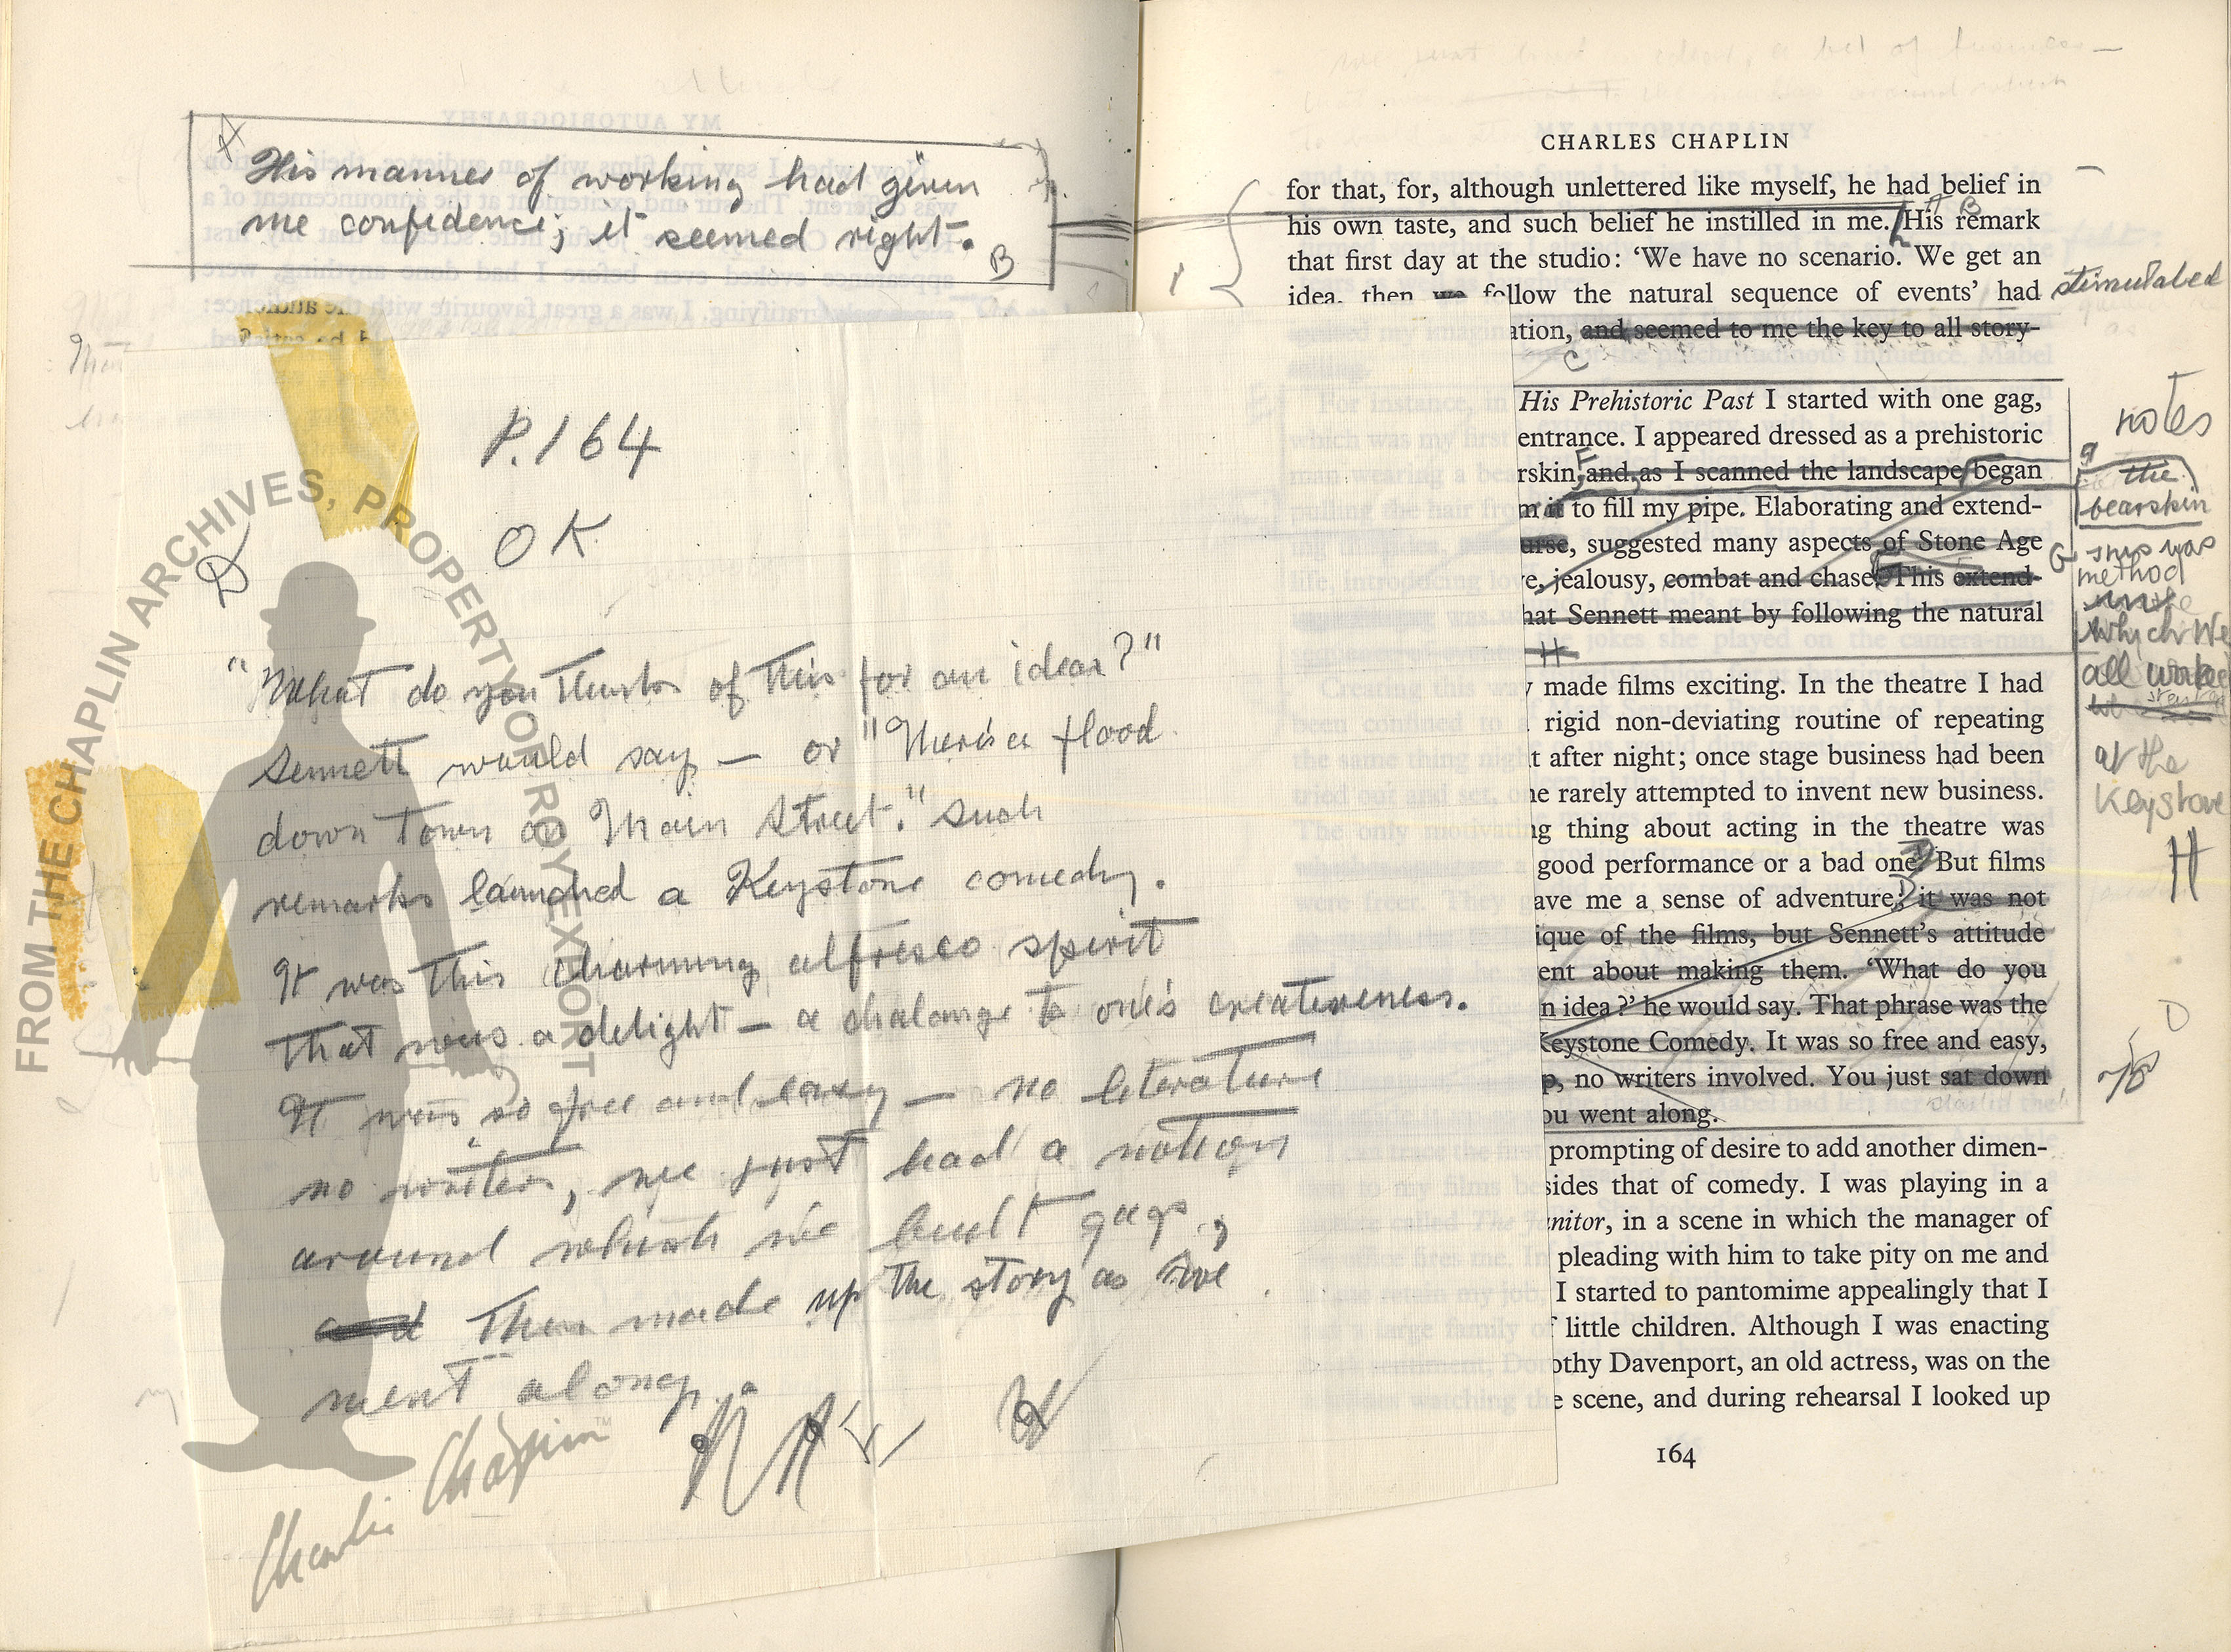 A
His manner of working had given
me confidence; it seemed right.
B
P. 164
OK
D
"What do you think of this for an idea?"
Sennett would say — or "There's a flood
down town on Main Street." Such
remarks launched a Keystone comedy.
It was this charming alfresco spirit
that was a delight — a chalange to one's creativeness.
It was so free and easy — no literature
no writers, we just had a notion
around which we built gags,
and then made up the story as we
went along.
FROM THE CHAPLIN ARCHIVES, PROPERTY OF ROY EXPORT
Charlie Chaplin™
CHARLES CHAPLIN
for that, for, although unlettered like myself, he had belief in
his own taste, and such belief he instilled in me. His remark
A B
that first day at the studio: ‘We have no scenario. We get an
idea, then we follow the natural sequence of events’ had
stimulated
ation, and seemed to me the key to all story-
C
His Prehistoric Past I started with one gag,
entrance. I appeared dressed as a prehistoric
rskin, and, as I scanned the landscape, began
m it to fill my pipe. Elaborating and extend-
urse, suggested many aspects of Stone Age
e, jealousy, combat and chase. This extend-
hat Sennett meant by following the natural
H
made films exciting. In the theatre I had
rigid non-deviating routine of repeating
t after night; once stage business had been
ne rarely attempted to invent new business.
ng thing about acting in the theatre was
good performance or a bad one. But films
ave me a sense of adventure; it was not
ique of the films, but Sennett’s attitude
ent about making them. ‘What do you
n idea?’ he would say. That phrase was the
Keystone Comedy. It was so free and easy,
p, no writers involved. You just sat down
ou went along.
prompting of desire to add another dimen-
sides that of comedy. I was playing in a
nitor, in a scene in which the manager of
pleading with him to take pity on me and
I started to pantomime appealingly that I
f little children. Although I was enacting
othy Davenport, an old actress, was on the
e scene, and during rehearsal I looked up
164
notes
the
bearskin
G this was
method
which we
all worked
at the
Keystone
H
D